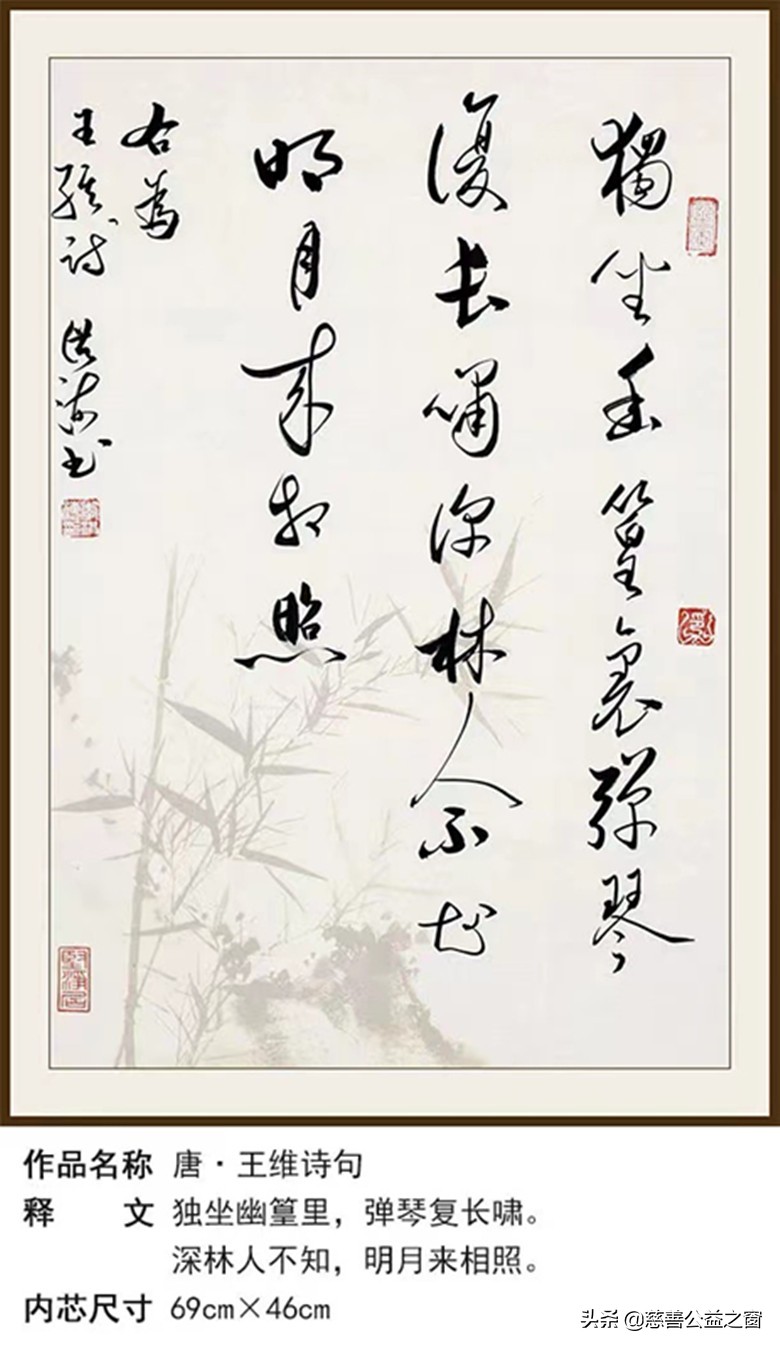 獨坐幽篁裏彈琴
復长嘯深林人不知
明月来相照
右為
王維詩 洪涛书
作品名称 唐·王维诗句
释 文 独坐幽篁里，弹琴复长啸。
深林人不知，明月来相照。
内芯尺寸 69cm×46cm
头条 @慈善公益之窗